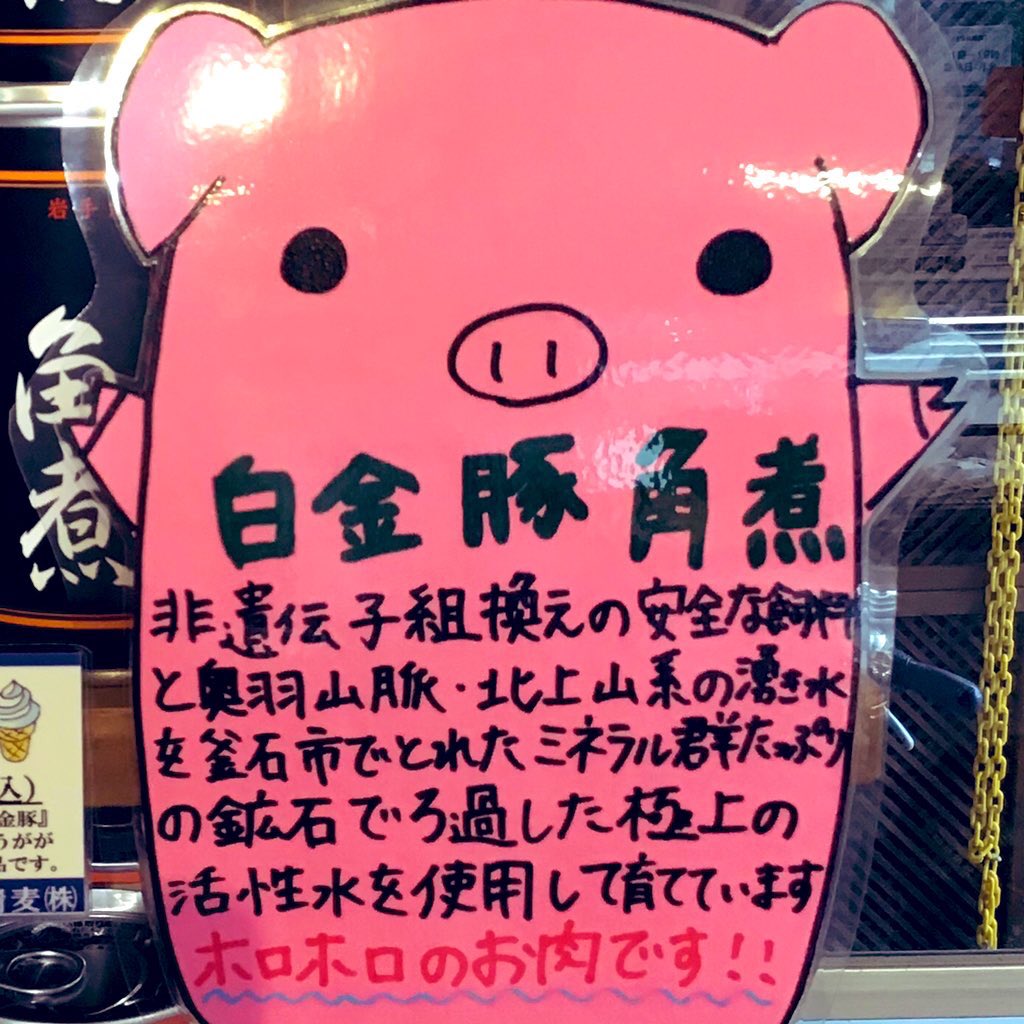 岩手
角煮
白金豚角煮
非遺伝子組換えの安全な飼料
と奥羽山脈・北上山系の湧き水
を釜石市でとれたミネラル群たっぷり
の鉱石でろ過した極上の
活性水を使用して育てています
ホロホロのお肉です!!
入)
金豚』
うがが
品です。
麦(株)